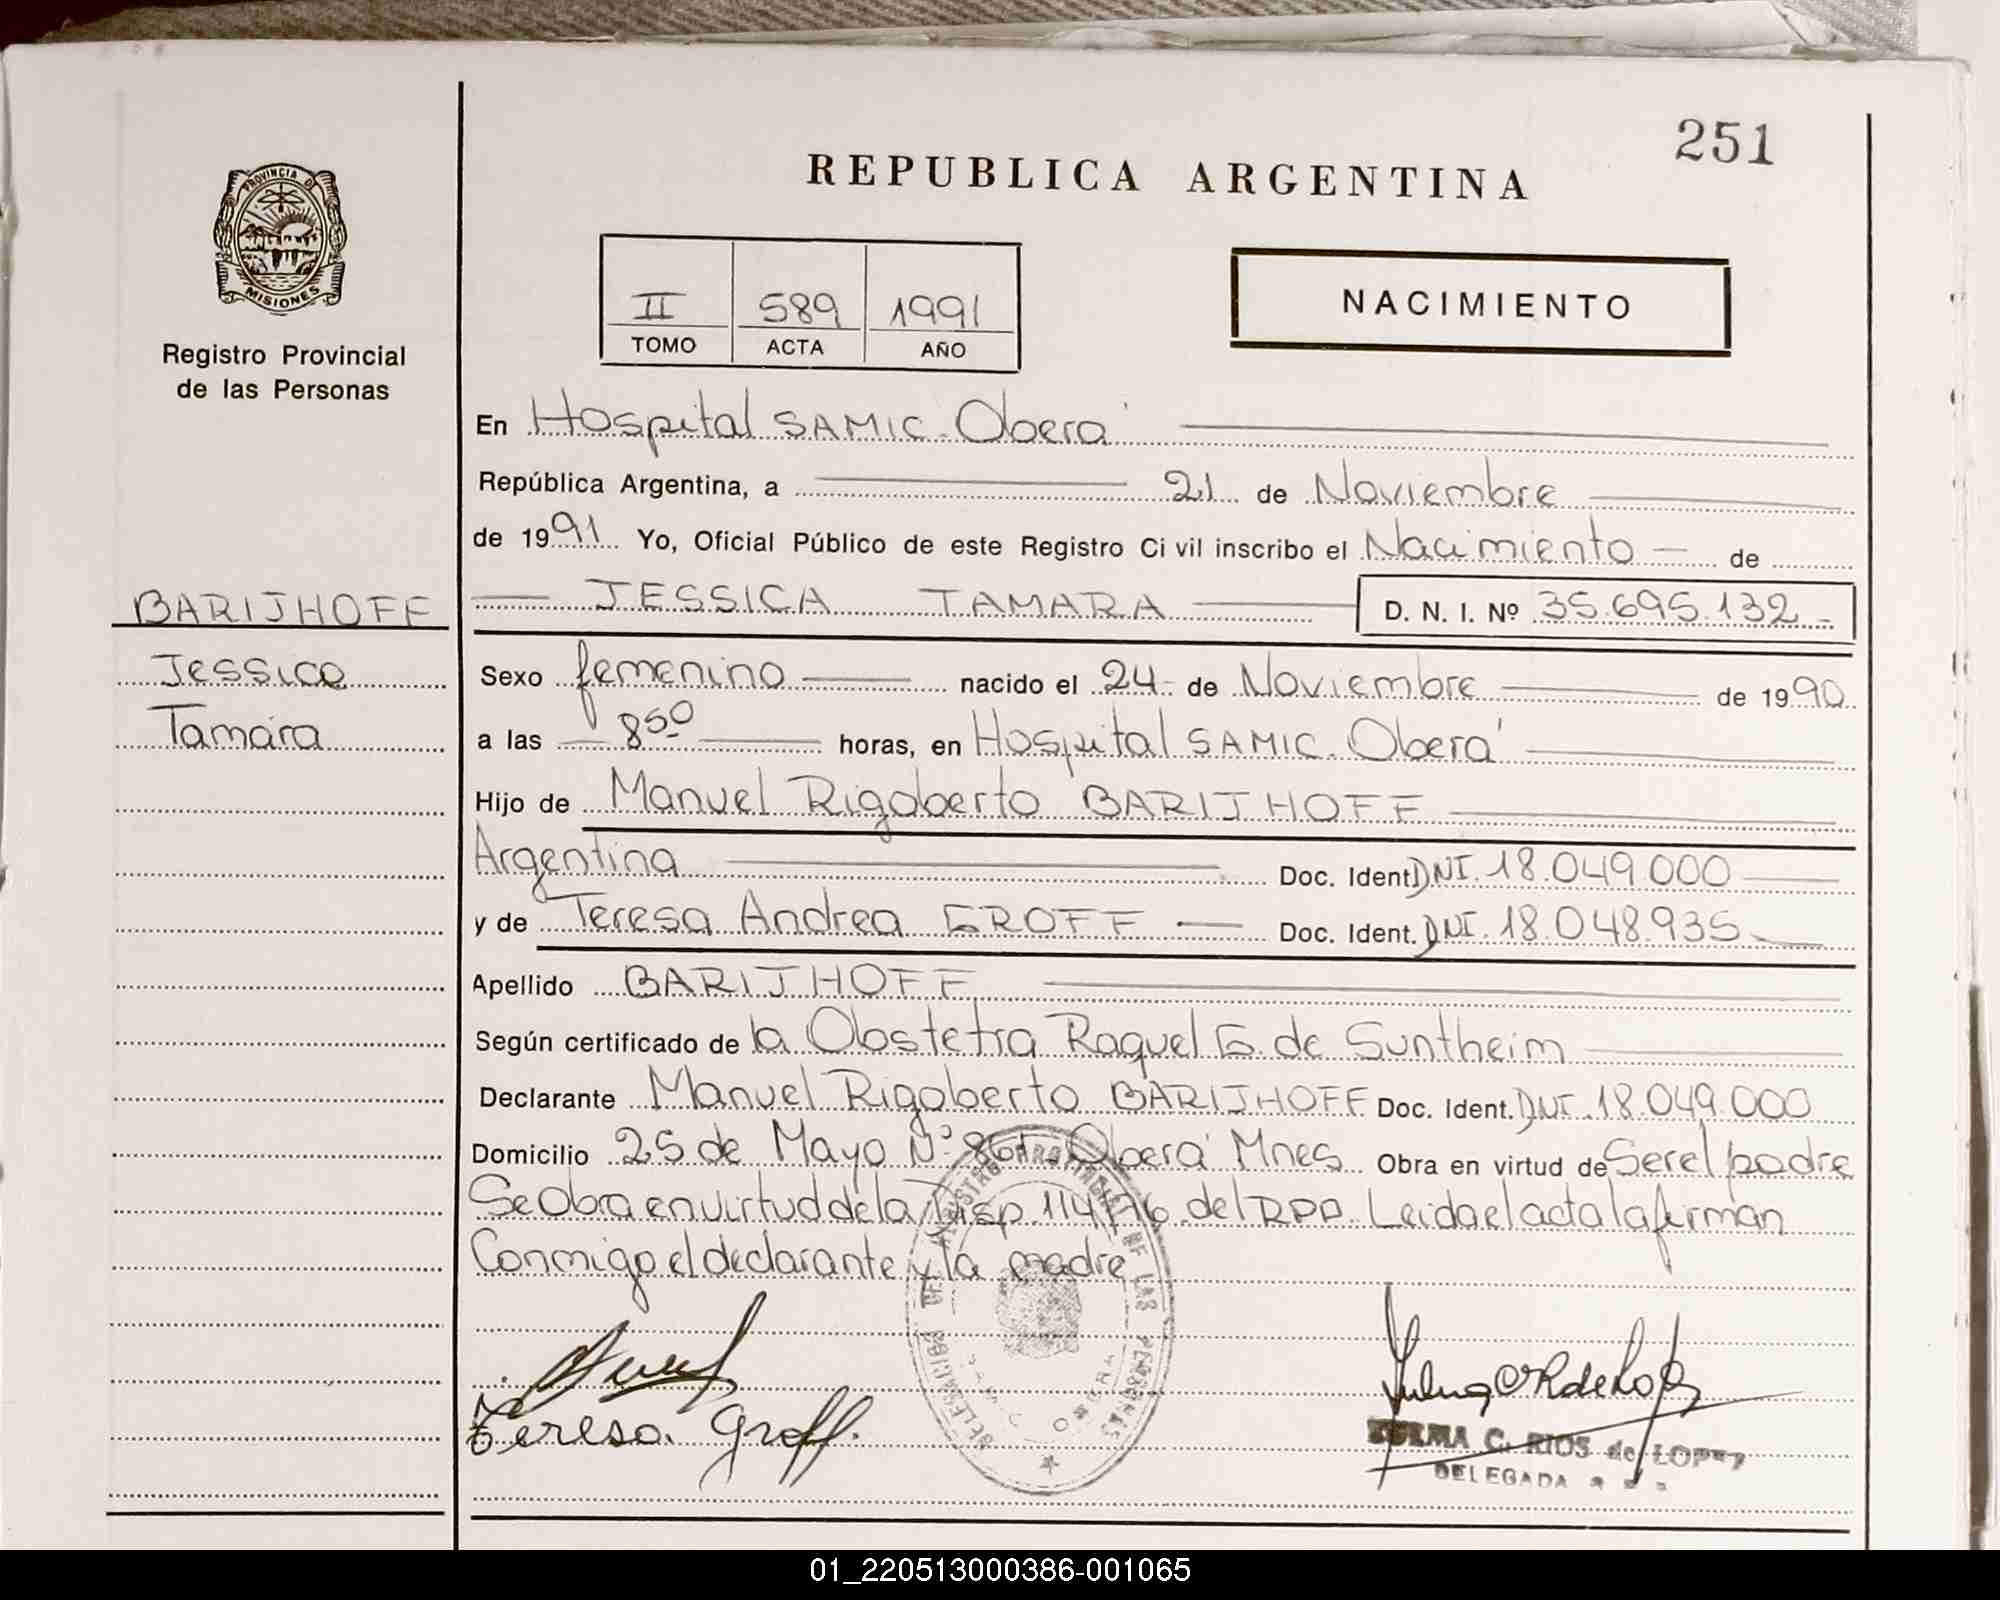 251
REPUBLICA ARGENTINA
PROVINCIA DE
MISIONES
Registro Provincial
de las Personas
II 589 1991
TOMO ACTA AÑO
NACIMIENTO
En Hospital SAMIC. Oberá
República Argentina, a 21 de Noviembre
de 1991 Yo, Oficial Público de este Registro Ci vil inscribo el Nacimiento de
JESSICA TAMARA D. N. I. Nº 35.695.132
BARIJHOFF
Jessica
Tamara
Sexo femenino nacido el 24 de Noviembre de 1990
a las 8 50 horas, en Hospital SAMIC. Oberá
Hijo de Manuel Rigoberto BARIJHOFF
Argentina Doc. Ident. DNI. 18.049.000
y de Teresa Andrea GROFF Doc. Ident. DNI. 18.048.935
Apellido BARIJHOFF
Según certificado de la Obstetra Raquel G. de Suntheim
Declarante Manuel Rigoberto BARIJHOFF Doc. Ident. DNI. 18.049.000
Domicilio 25 de Mayo Nº Oberá Mnes Obra en virtud de Ser el padre
Se Obra en virtud de la Disp. 114/76 del RPP. Leida el acta la firman
Conmigo el declarante y la madre
Teresa Groff.
C. RIOS de LOPEZ
DELEGADA
01_220513000386-001065